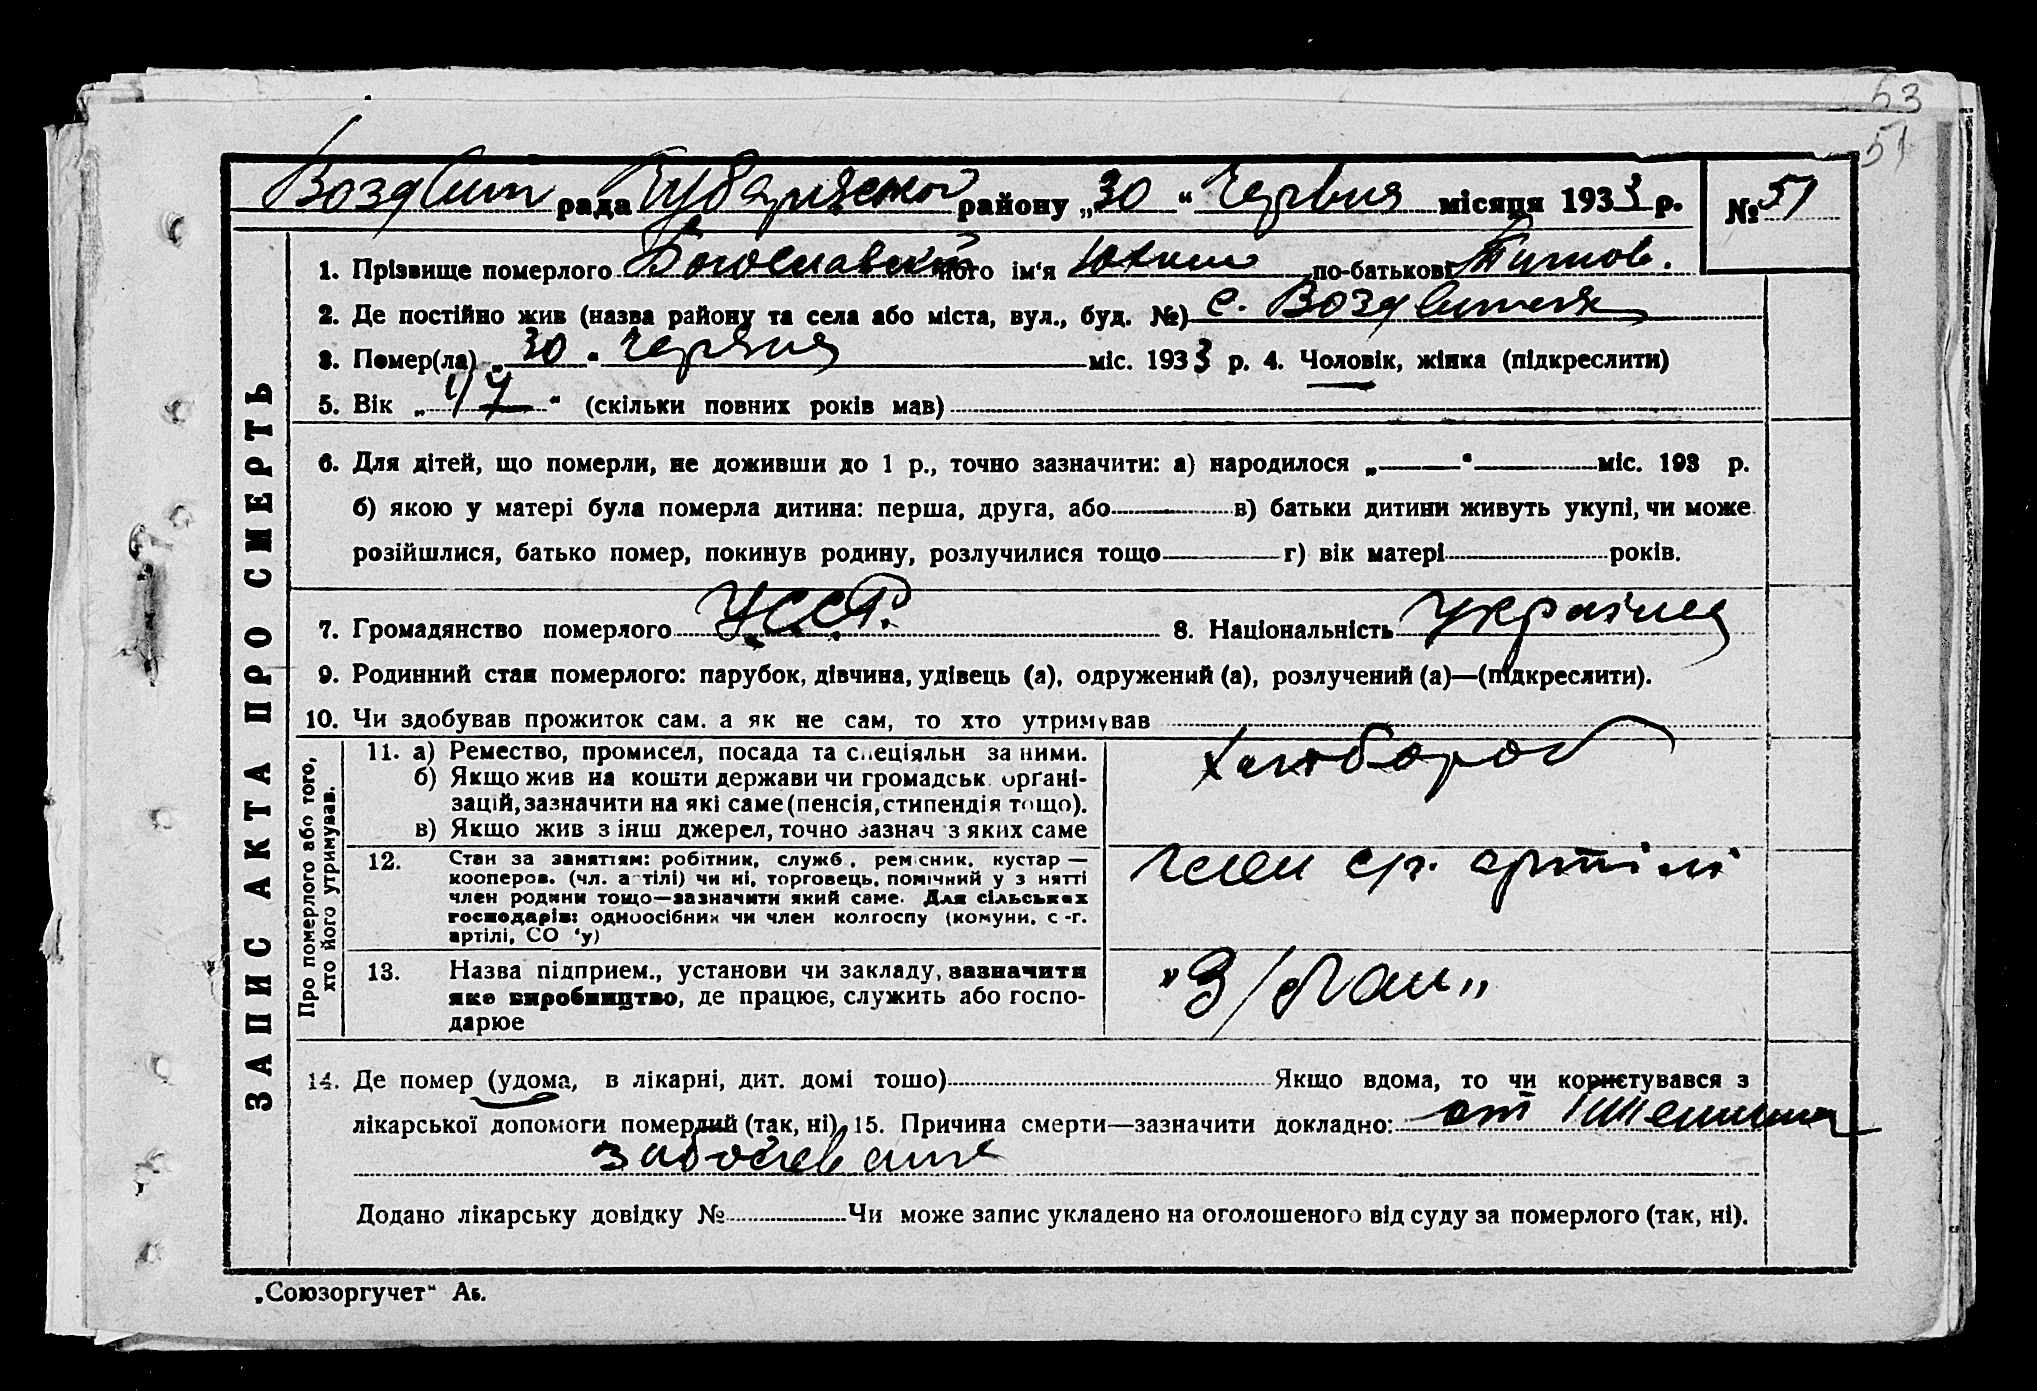 53
51
Воздвиж рада району „30“ Червня місяця 1933 р. № 51
1. Прізвище померлого Богославский його ім'я Юхим по-батькові
2. Де постійно жив (назва району та села або міста, вул., буд. №) с. Воздвиженя
3. Помер(ла) „30“ червня міс. 1933 р. 4. Чоловік, жінка (підкреслити)
5. Вік „47“ (скільки повних років мав)
6. Для дітей, що померли, не доживши до 1 р., точно зазначити: а) народилося „—“— міс. 193 р.
б) якою у матері була померла дитина: перша, друга, або — в) батьки дитини живуть укупі, чи може
розійшлися, батько помер, покинув родину, розлучилися тощо — г) вік матері років.
7. Громадянство померлого УССР. 8. Національність україне
9. Родинний стан померлого: парубок, дівчина, удівець (а), одружений (а), розлучений (а)—(підкреслити).
10. Чи здобував прожиток сам. а як не сам, то хто утримував
ЗАПИС АКТА ПРО СМЕРТЬ
Про померлого або того,
хто його утримував.
11. а) Ремество, промисел, посада та спеціяльн за ними.
б) Якщо жив на кошти держави чи громадськ. органі-
зацій, зазначити на які саме (пенсія, стипендія тощо).
в) Якщо жив з інш джерел, точно зазнач з яких саме
Хлібороб
12. Стан за заняттям: робітник, служб., ремісник, кустар —
кооперов. (чл. артілі) чи ні, торговець, помічний у занятті
член родини тощо—зазначити який саме. Для сільських
господарів: одноосібник чи член колгоспу (комуни, с-г.
артілі, СО 'у)
член ср. артілі
13. Назва підприєм., установи чи закладу, зазначити
яке виробництво, де працює, служить або госпо-
дарює
14. Де помер (удома, в лікарні, дит. домі тошо) Якщо вдома, то чи користувався з
лікарської допомоги померлий (так, ні) 15. Причина смерти—зазначити докладно: от
заболевание
Додано лікарську довідку № Чи може запис укладено на оголошеного від суду за померлого (так, ні).
„Союзоргучет“ Аб.